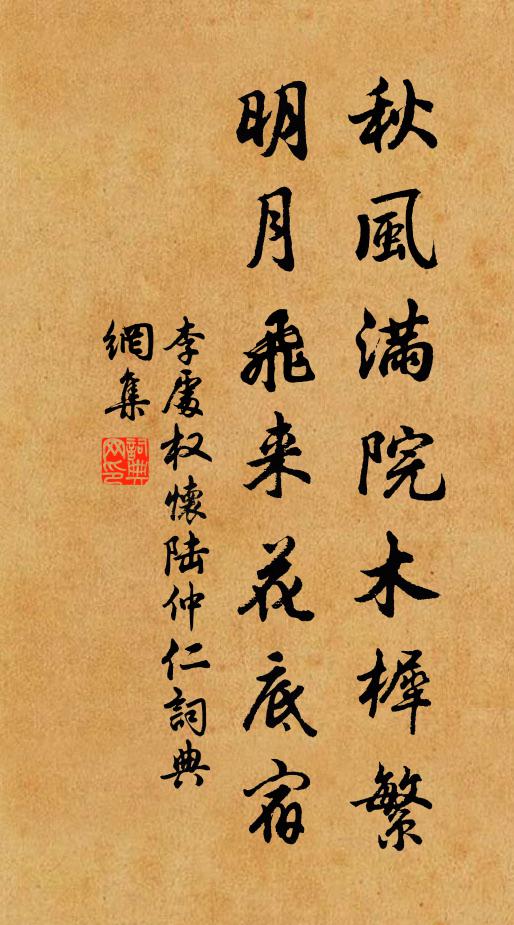 秋風满院木樨繁
明月飛来花底宿
李處权懷陆仲仁詞典
網集
詞典网印